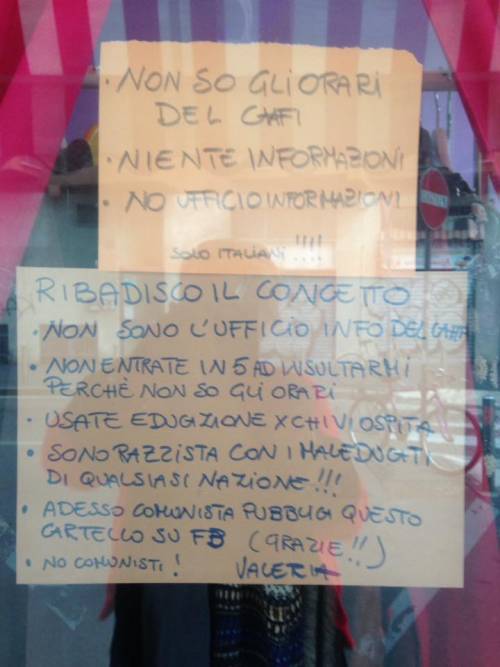 · NON SO GLI ORARI
DEL CAFI
· NIENTE INFORMAZIONI
· NO UFFICIO INFORMAZIONI
SOLO ITALIANI !!!!
RIBADISCO IL CONCETTO
· NON SONO L'UFFICIO INFO DEL CAFI
· NON ENTRATE IN 5 AD INSULTARMI
PERCHÈ NON SO GLI ORARI
· USATE EDUCAZIONE X CHI VI OSPITA
· SONO RAZZISTA CON I MALEDUCATI
DI QUALSIASI NAZIONE !!!
· ADESSO COMUNISTA PUBBLICA QUESTO
CARTELLO SU FB (GRAZIE !!)
· NO COMUNISTI ! VALERIA